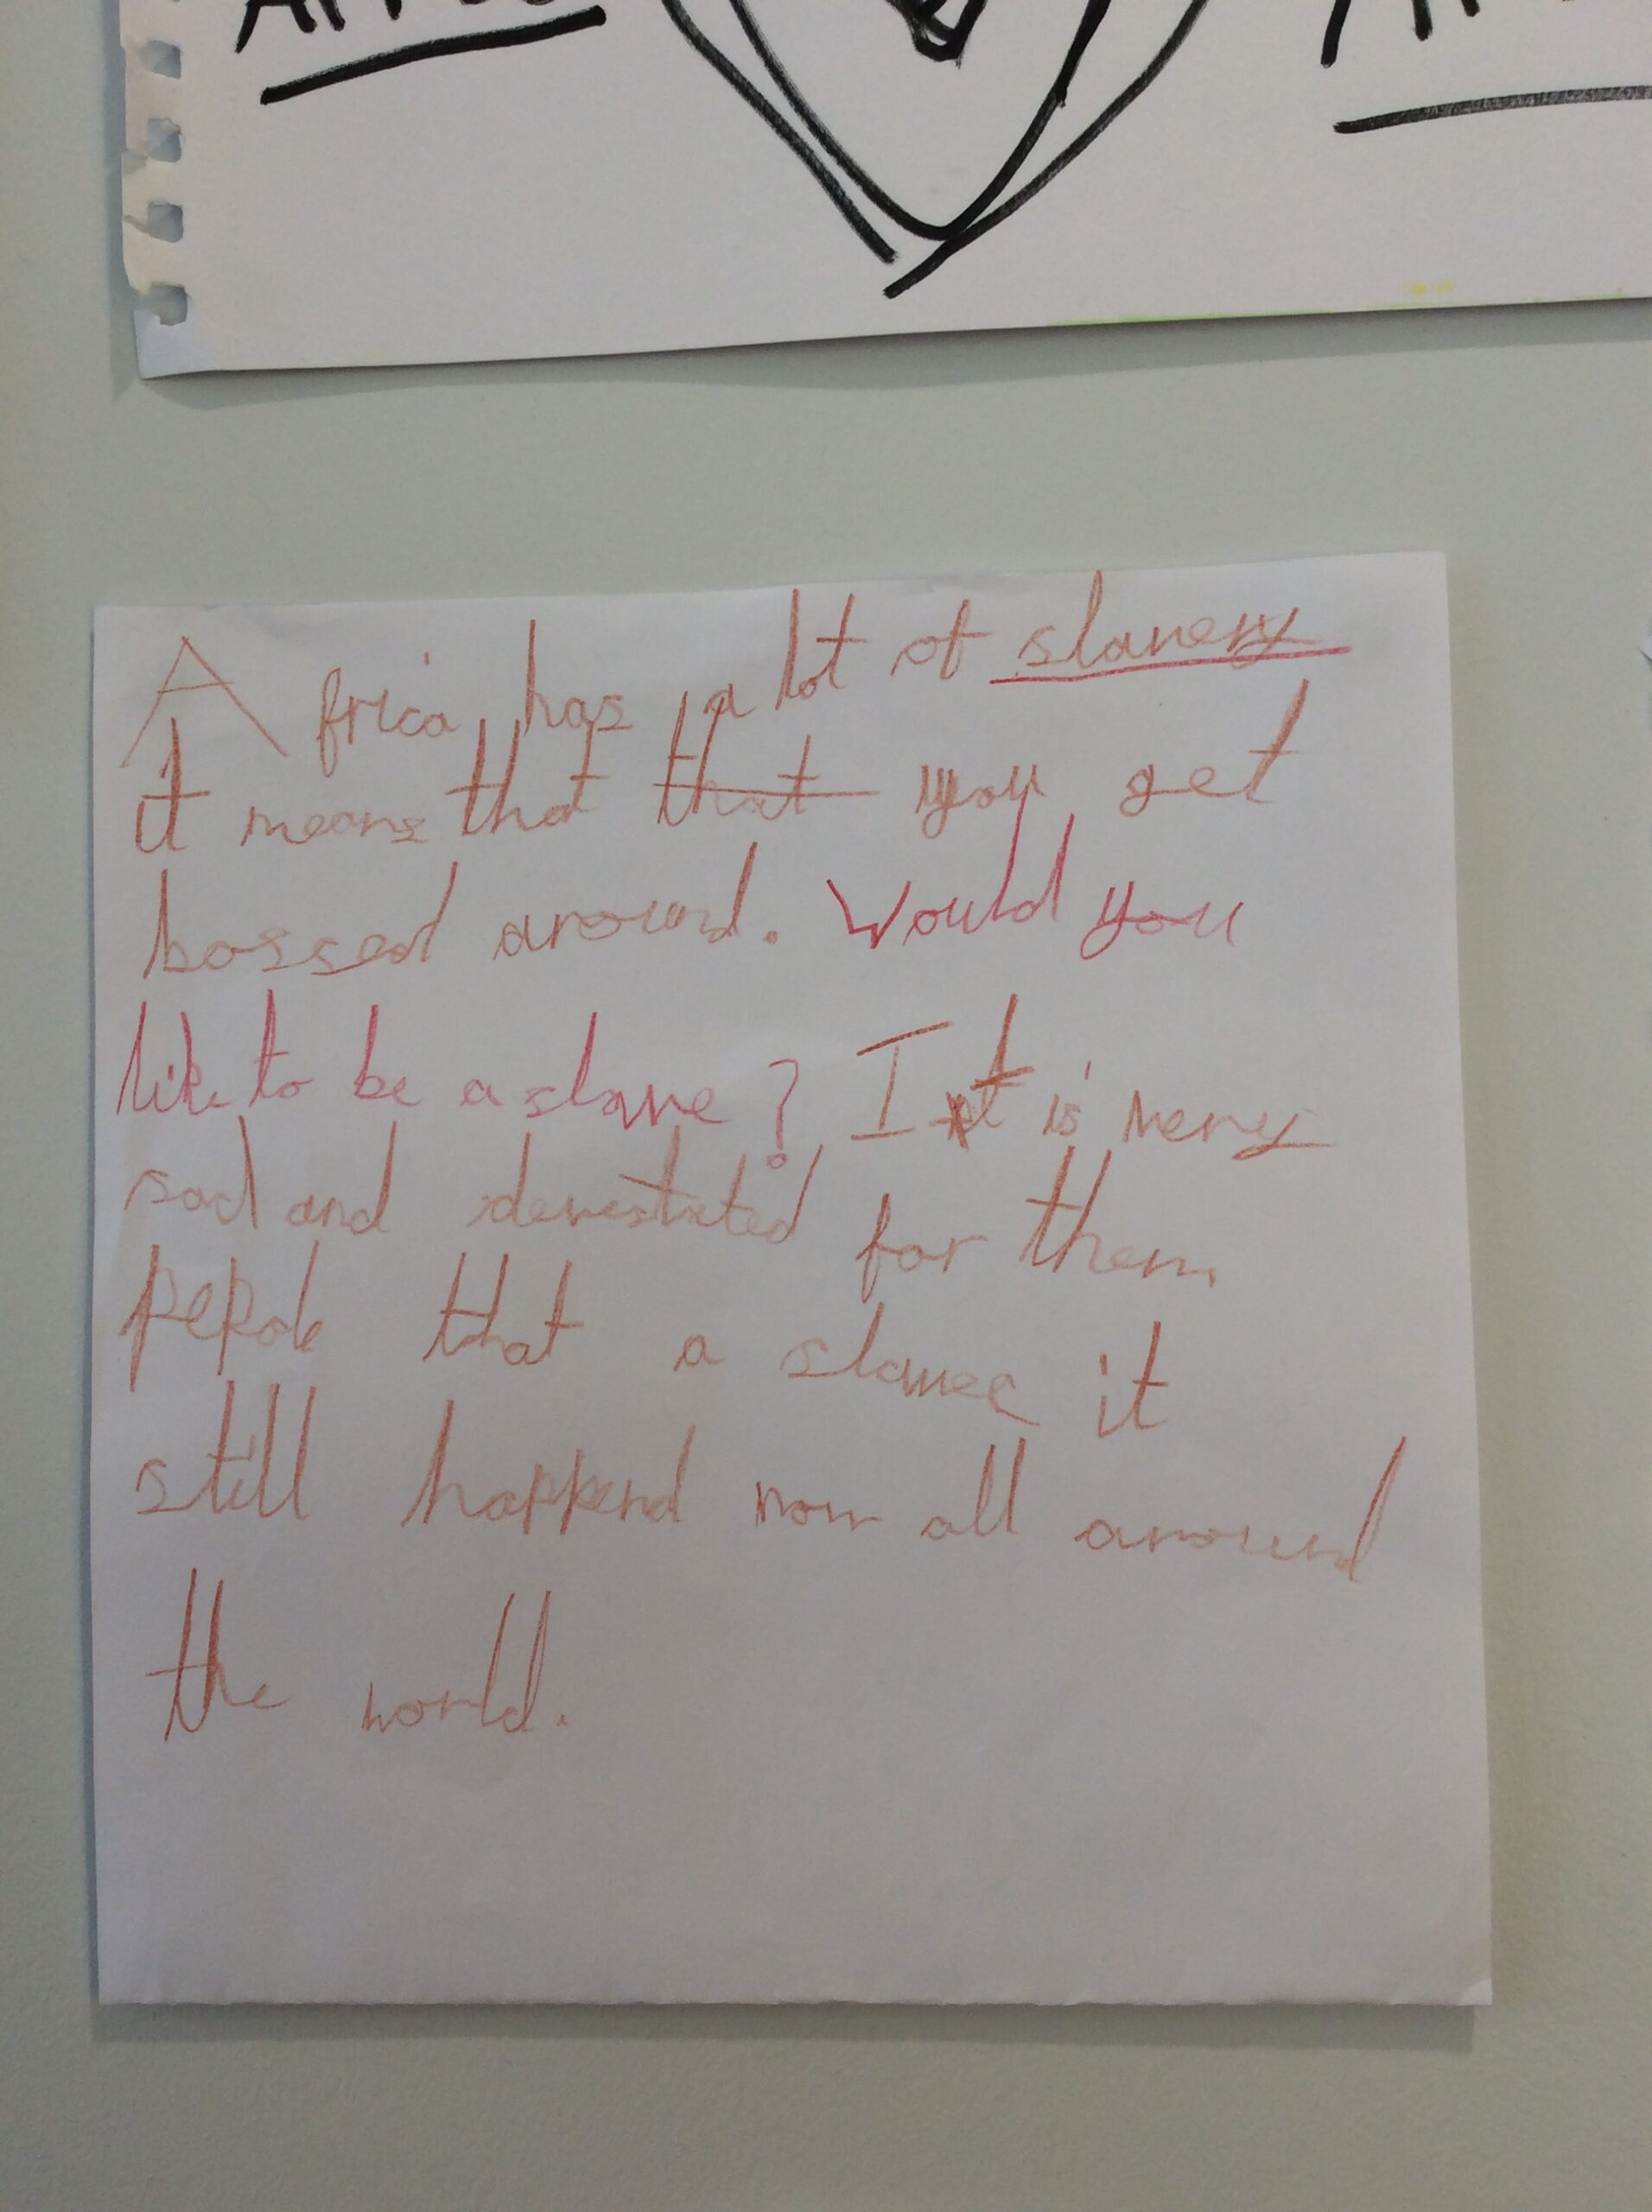 Africa has a lot of slavery
it means that that you get
bossed around. Would you
like to be a slave? It is very
sad and devestated for them
pepole that a slaves it
still happend now all around
the world.